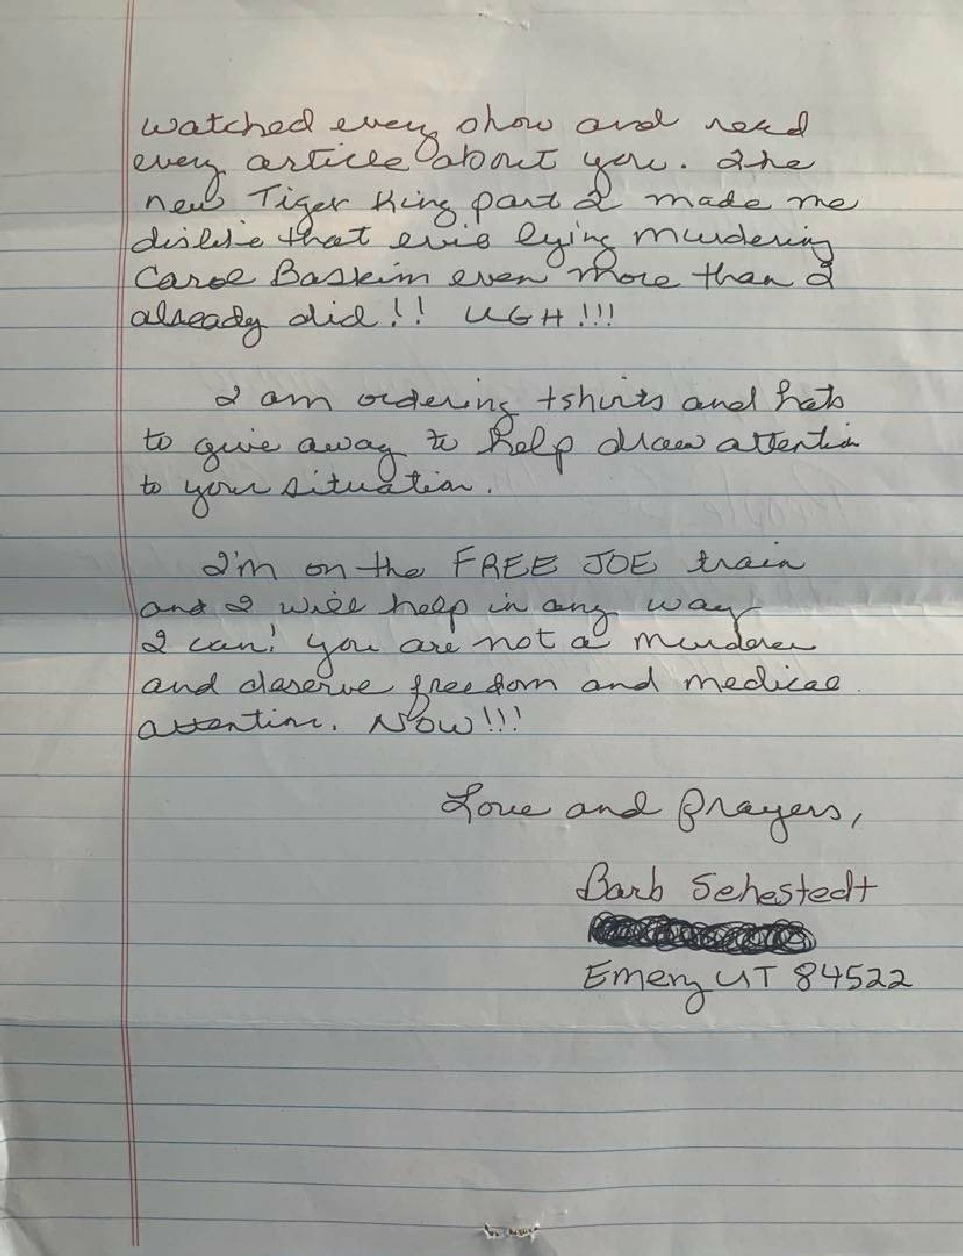 watched every show and read
every article about you. The
new Tiger King part 2 made me
dislike that evil lying murdering
Carol Baskim even more than I
already did!! UGH!!!
I am ordering tshirts and hats
to give away to help draw attention
to your situation.
I'm on the FREE JOE train
and I will help in any way
I can! You are not a murderer
and deserve freedom and medical
attention. NOW!!!
Love and prayers,
Barb Sehestedt
Emery UT 84522